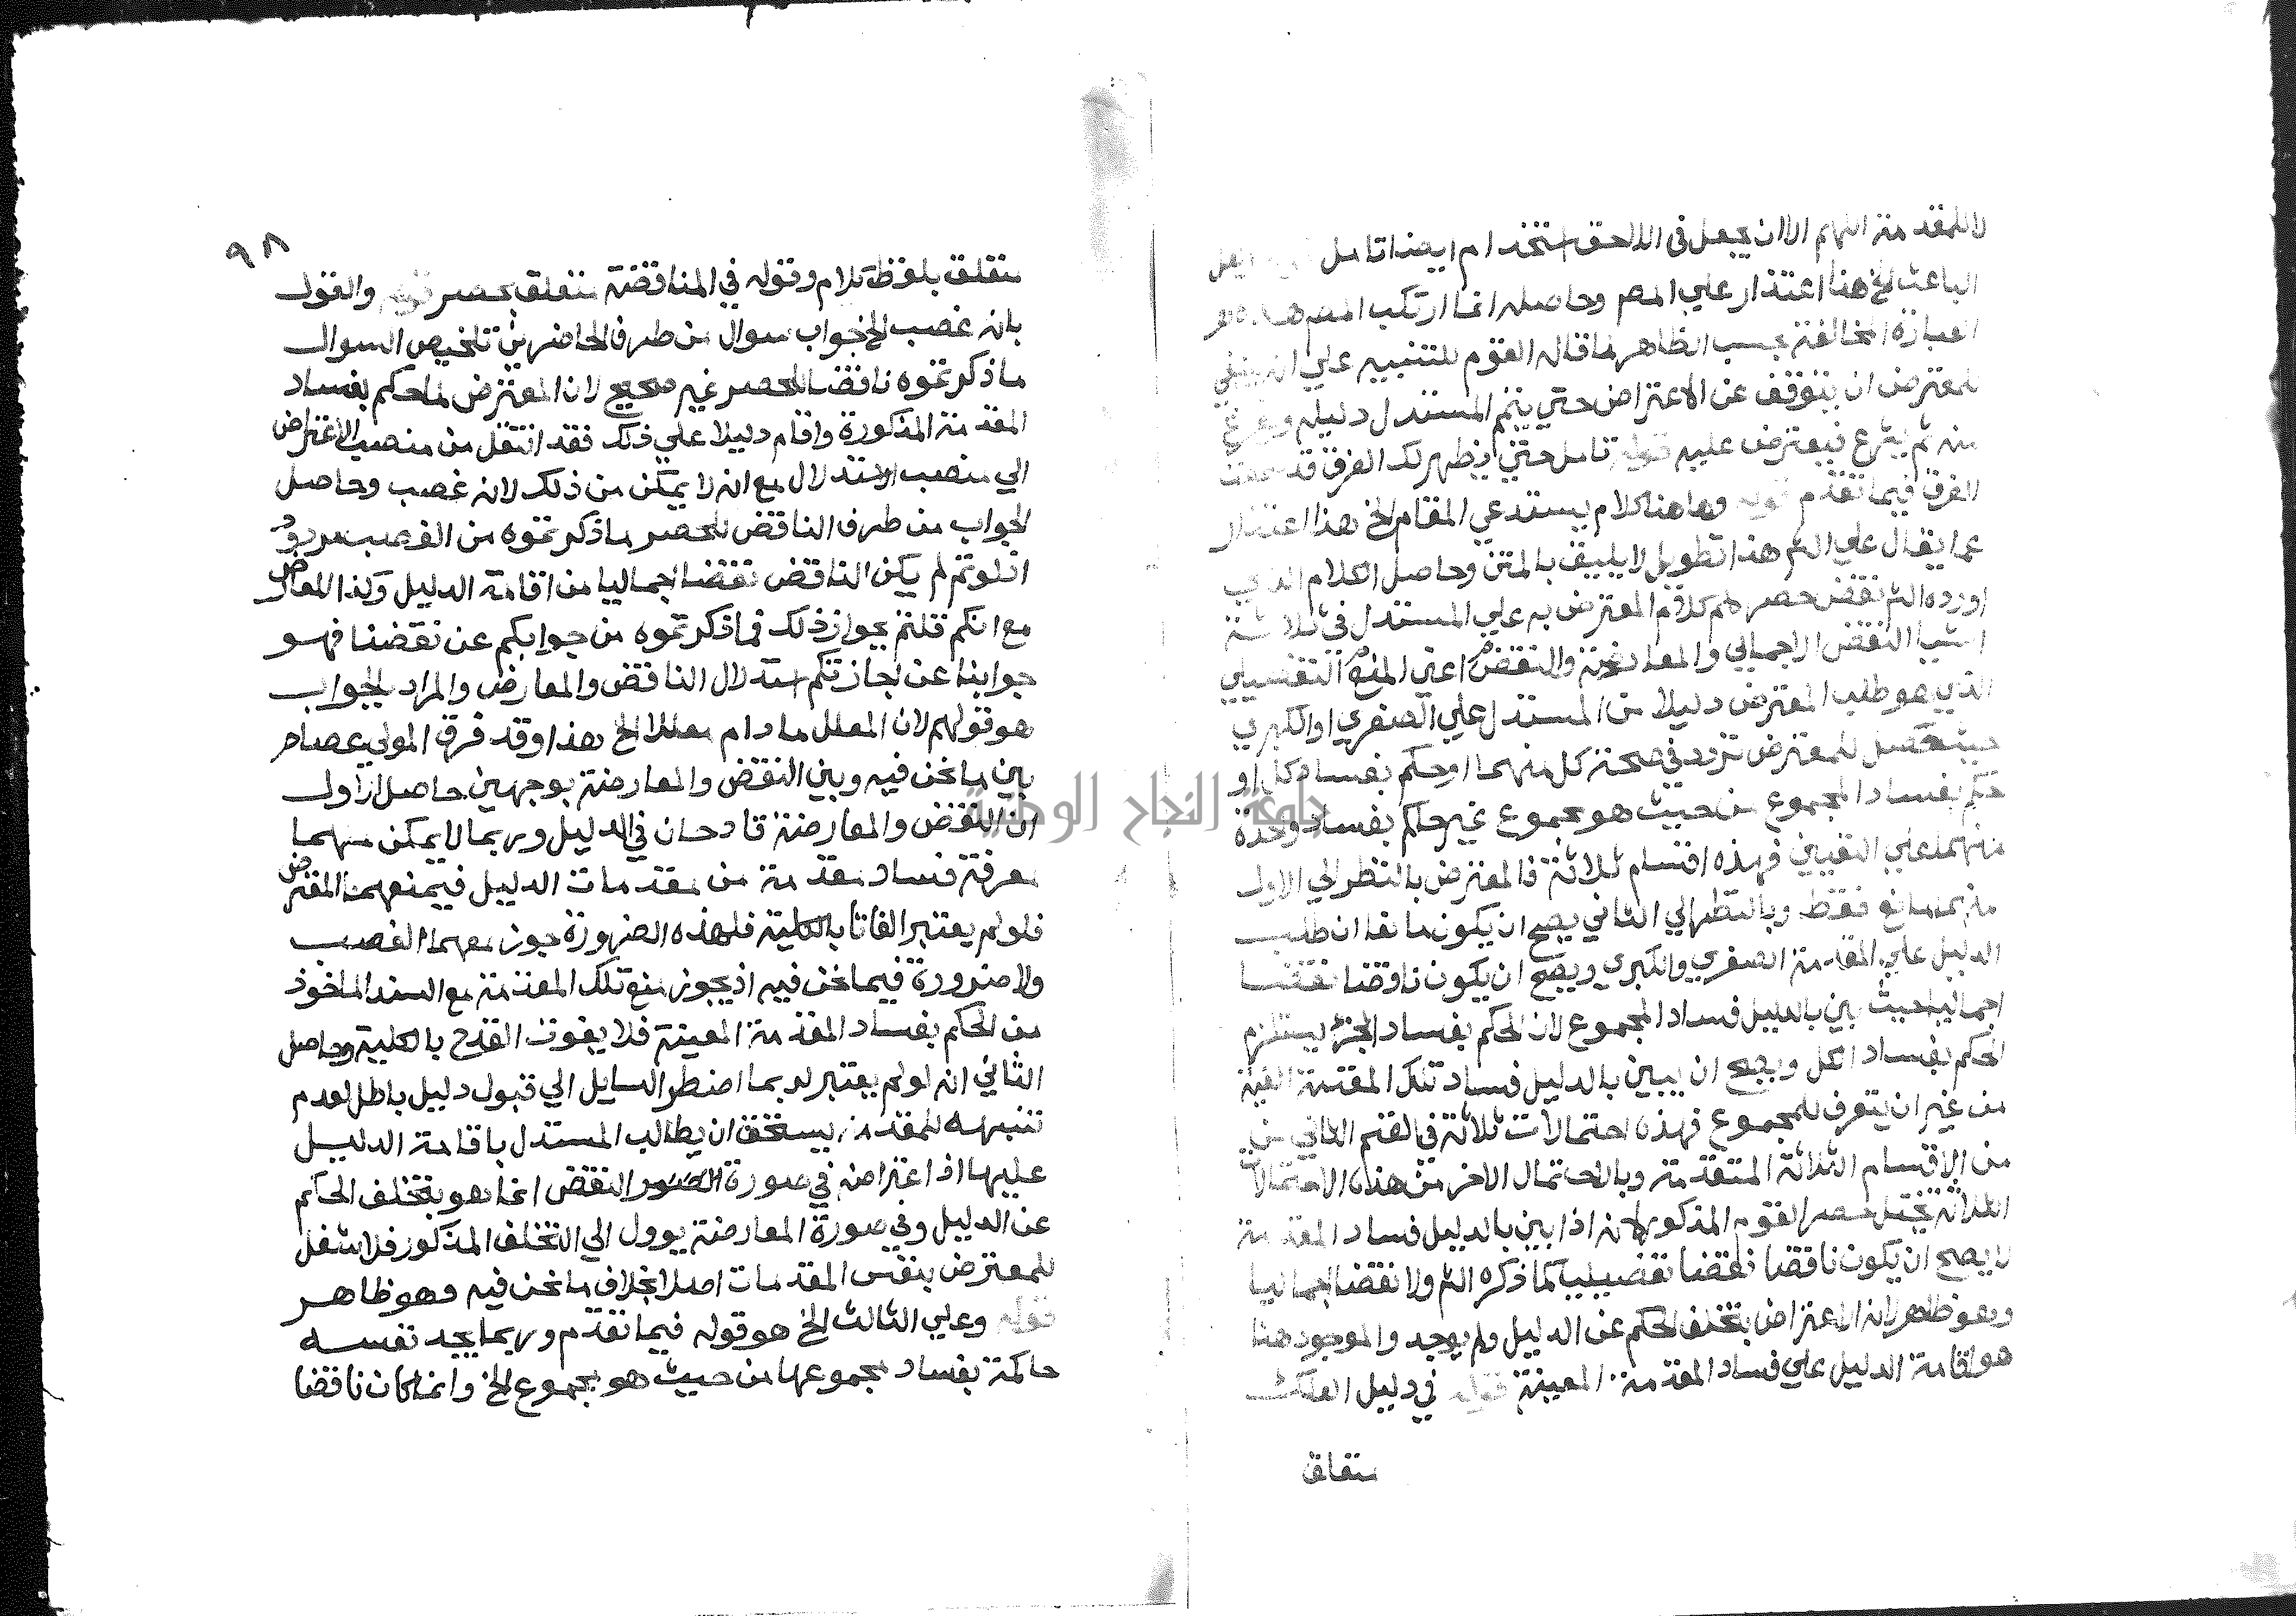 لا للمقدمة اللهم الا ان يجعل في اللاحق استخدام ايضا تامل
الباعث الخ هنا اعتذار علي المص وحاصله انما ارتكب المص هذه
العبارة المخالفة بحسب الظاهر لما قاله القوم للتنبيه علي انه ينبغي
للمعترض ان يتوقف عن الاعتراض حتي يتم المستدل دليله ويفرغ
منه ثم يشرع فيعترض عليه قوله تامل حتي يظهر لك الفرق قد
الفرق فيما تقدم قوله وهاهنا كلام يستدعي المقام الخ هذا اعتذار
عما يقال علي الش هذا تطويل لا يليق بالمتن وحاصل الكلام الذي
اورده الش نقض حصرهم كلام المعترض به علي المستدل في ثلاثة
اشيا النقض الاجمالي والمعارضة والنقض اعني المنع التفصيلي
الذي هو طلب المعترض دليلا من المستدل علي الصغري او الكبري
حيث حصل للمعترض تردد في صحة كل منهما او حكم بفساد كل او
حكم بفساد المجموع من حيث هو مجموع غير حاكم بفساد واحدة
منهما علي التعيين فهذه اقسام ثلاثة فالمعترض بالنظر الي الاول
منهما مانع فقط وبالنظر الي الثاني يصح ان يكون مانعا ان طلب
الدليل علي المقدمة الصغري والكبري ويصح ان يكون ناقضا نقضا
اجماليا حيث بين بالدليل فساد المجموع لان الحكم بفساد الجزء يستلزم
الحكم بفساد الكل ويصح ان يبين بالدليل فساد تلك المقدمة المعينة
من غير ان يتعرف للمجموع فهذه احتمالات ثلاثة في القسم الثاني من
من الاقسام الثلاثة المتقدمة وبالاحتمال الاخر من هذه الاحتمالات
الثلاثة يختل حصر القوم المذكور لانه اذا بين بالدليل فساد المقدمة
لا يصح ان يكون ناقضا نقضا تفصيليا كما ذكره الش ولا نقضا اجماليا
وهو ظاهر لان الاعتراض بتخلف الحكم عن الدليل ولم يوجد والموجود هنا
هو اقامة الدليل علي فساد المقدمة المعينة قوله في دليل المعلل
متعلق
٩٨
متعلق بلفظ كلام وقوله في المناقضة متعلق بحصر قوله والقول
بانه غصب الخ جواب سوال من طرف الحاضرين تلخيص السوال
ما ذكرتموه ناقضا للحصر غير صحيح لان المعترض لما حكم بفساد
المقدمة المذكورة واقام دليلا علي ذلك فقد انتقل من منصب الاعتراض
الي منصب الاستدلال مع انه لا يمكن من ذلك لانه غصب وحاصل
الجواب من طرف الناقض للحصر ما ذكرتموه من الغصب مردود
اذ لو تم لم يكن الناقض نقضا اجماليا من اقامة الدليل وكذا المعارض
مع انكم قلتم بجواز ذلك فما ذكرتموه من جوابكم عن نقضنا فهو
جوابنا عن اجازتكم استدلال الناقض والمعارض والمراد بالجواب
هو قولهم لان المعلل ما دام معللا الخ هذا وقد فرق المولي عصام
بين ما نحن فيه وبين النقض والمعارضة بوجهين حاصل الاول
ان النقض والمعارضة قادحان في الدليل وربما لا يمكن منهما
معرفة فساد مقدمة من مقدمات الدليل فيمنعهما المعترض
فلو لم يعتبر الفاتا بالكلية فلهذه الضرورة جوز معهما الغصب
ولا ضرورة فيما نحن فيه اذ يجوز منع تلك المقدمة مع السند الماخوذ
من الحكم بفساد المقدمة المعينة فلا يفوت القدح بالكلية وحاصل
الثاني انه لو لم يعتبر لربما اضطر السايل الي قبول دليل باطل لعدم
تنبهه للمقدمة يستحق ان يطالب المستدل باقامة الدليل
عليها اذ اعتراضه في صورة النقض انما هو بتخلف الحكم
عن الدليل وفي صورة المعارضة يوول الي التخلف المذكور فلا شغل
للمعترض بنفس المقدمات اصلا بخلاف ما نحن فيه وهو ظاهر
قوله وعلي الثالث الخ هو قوله فيما تقدم وربما يجد نفسه
حاكمة بفساد مجموعها من حيث هو مجموع الخ وانما كان ناقضا
جامعة النجاح الوطنية